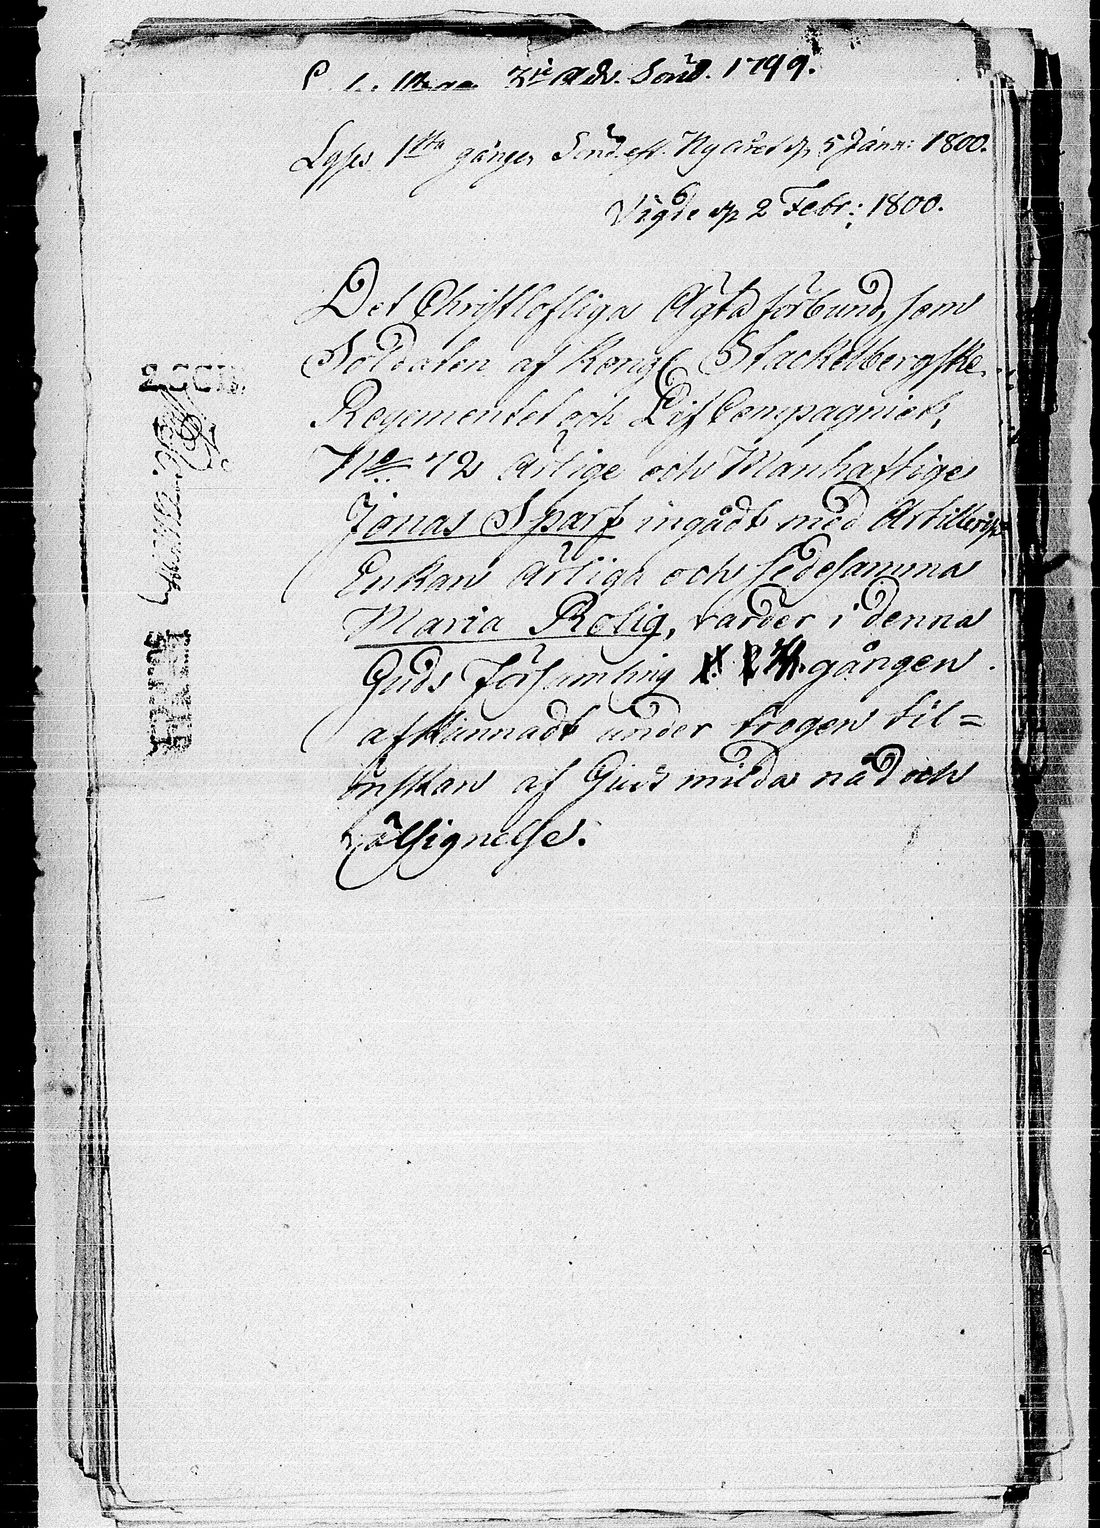 3die Adv. Sönd. 1799.
Lyses 1sta gången Sönd. eft. Nyåret d. 5 Janu: 1800.
Vigde d. 2 Febr: 1800.
Det Christloftliga Ägta förbund, som
Soldaten af Kongl Stackelbergske
Regimentet och Lif Compagniet,
No 72 Ärlige och Manhaftige
Jonas Sparf ingådt med Artillerist
Enkan Ärliga och sedesamma
Maria Rolig, varder i denna
Guds Församling gången
afkunnadt under trogen til=
önskan af Guds milda nåd och
välsignelse.